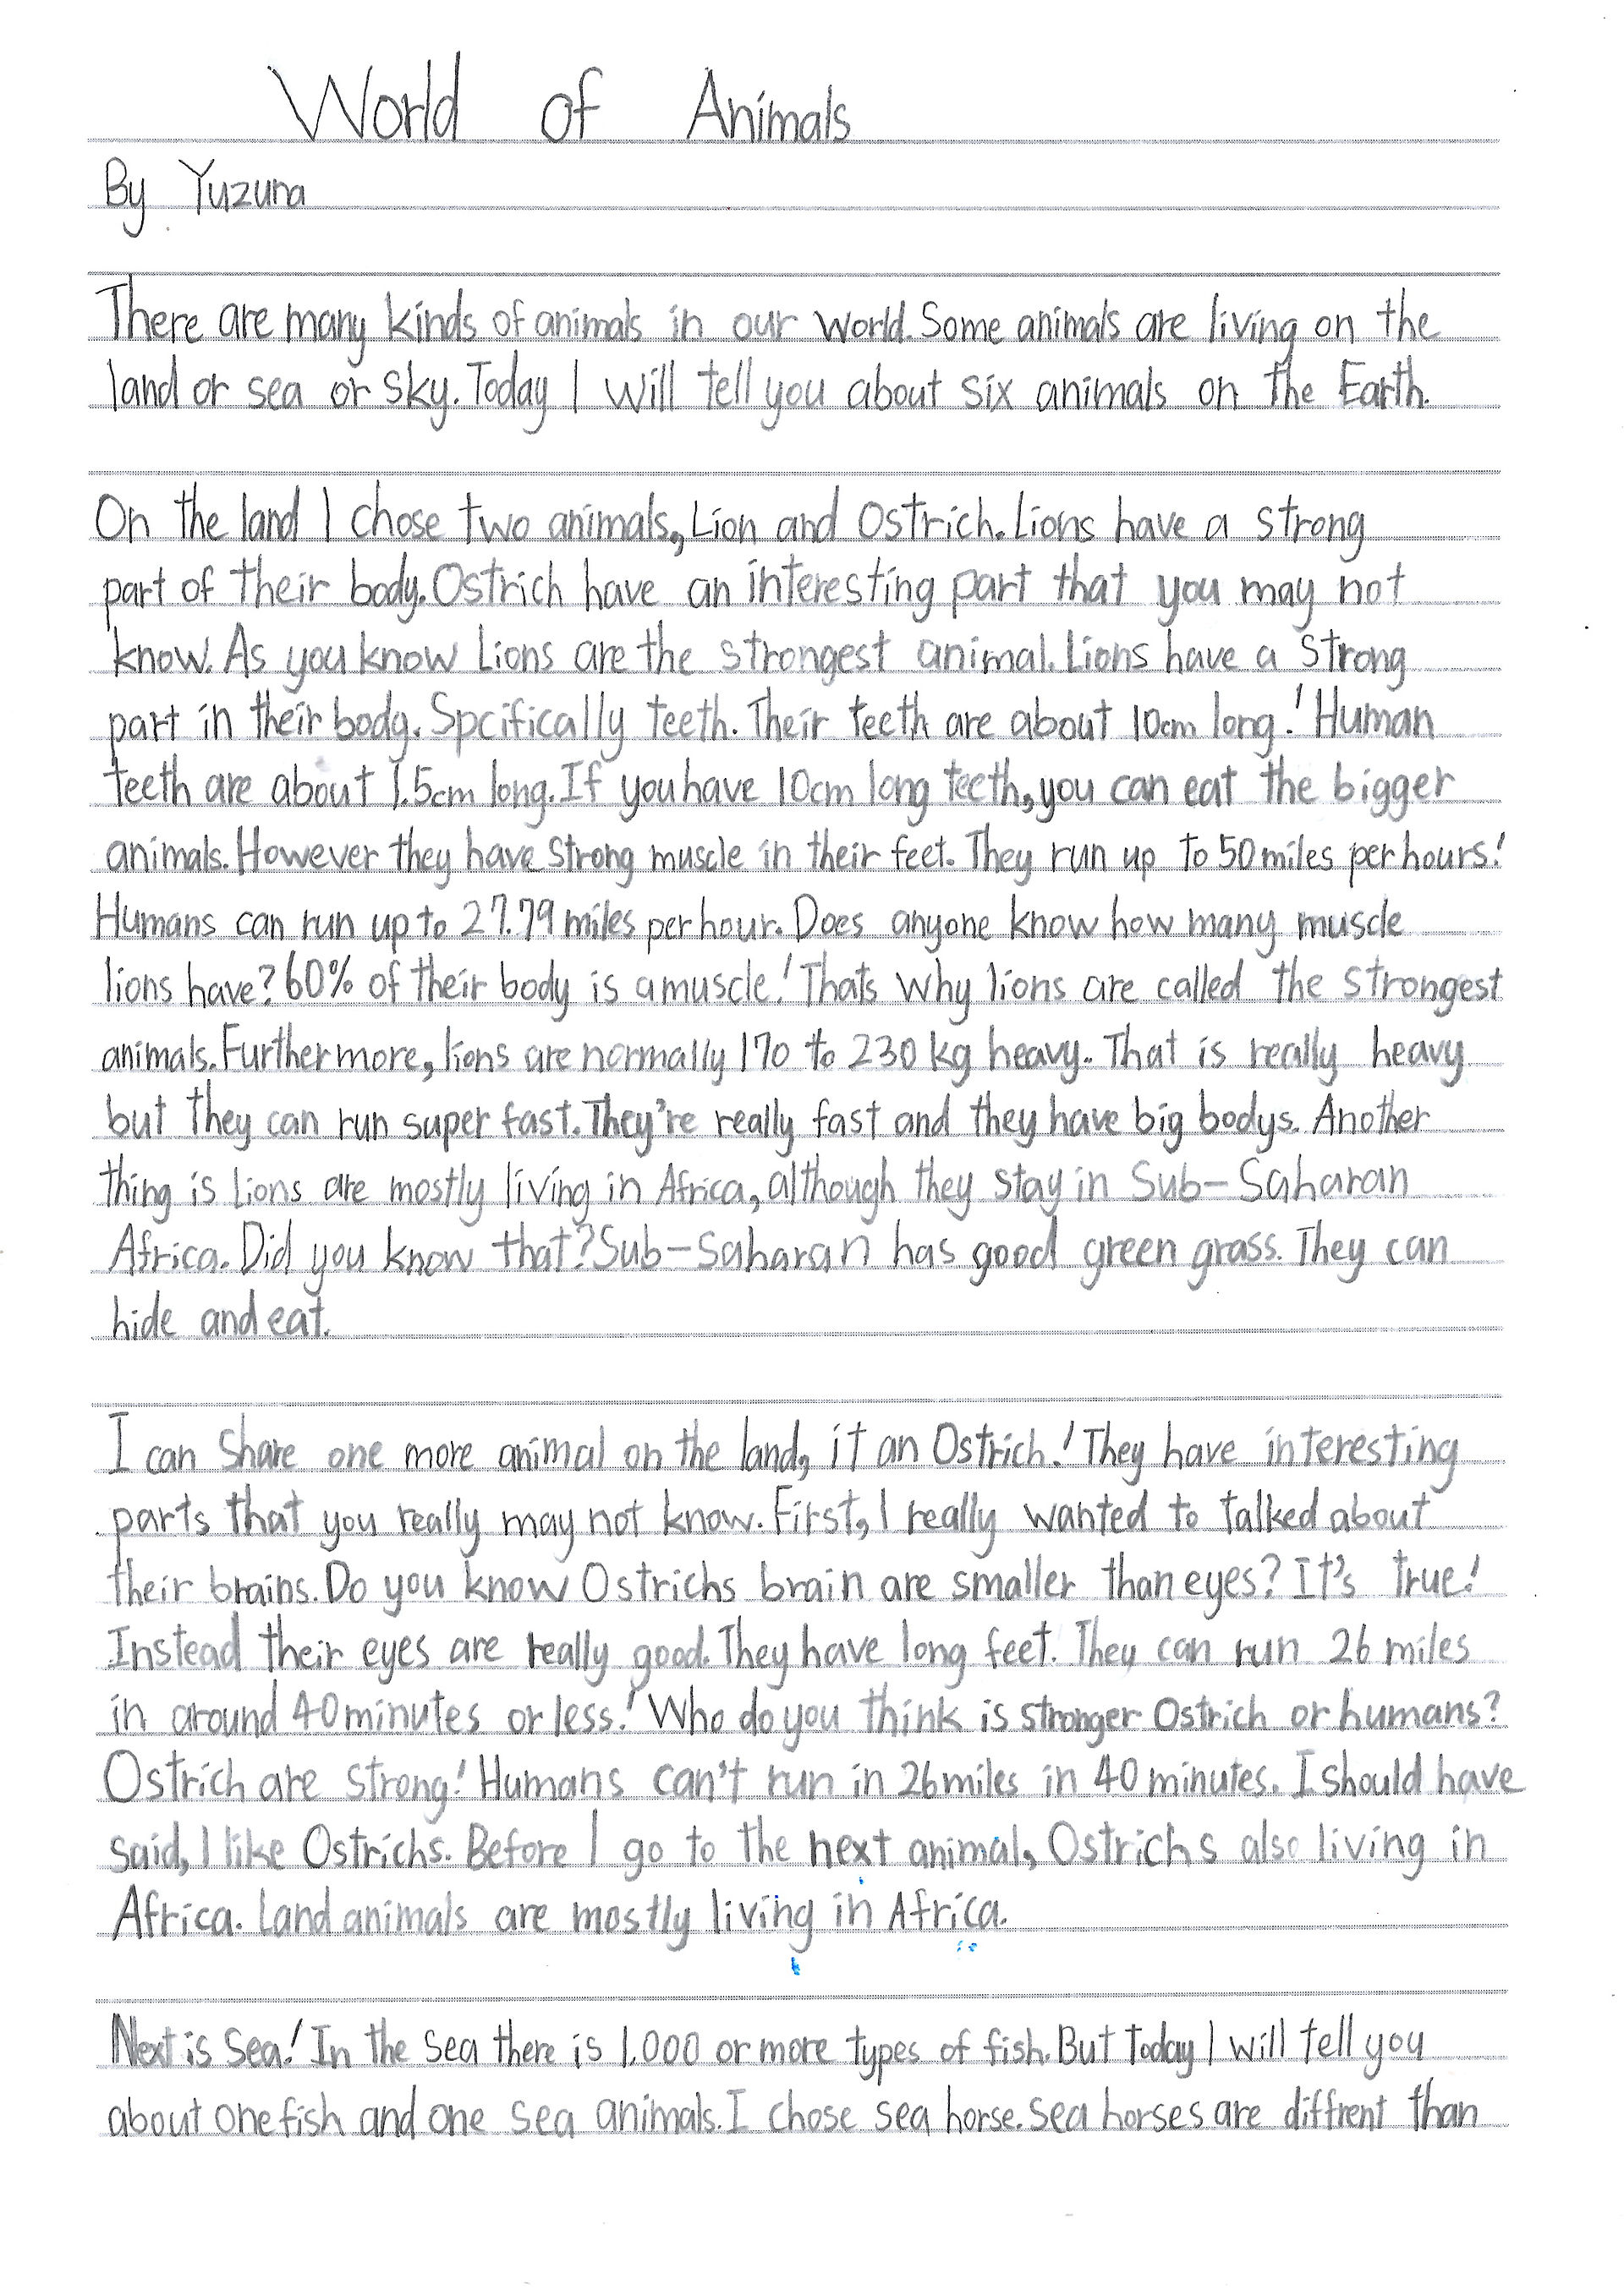 World of Animals
By Yuzuna
There are many kinds of animals in our world. Some animals are living on the
land or sea or sky. Today I will tell you about six animals on the Earth.
On the land I chose two animals, Lion and Ostrich. Lions have a strong
part of their body. Ostrich have an interesting part that you may not
know. As you know Lions are the strongest animal. Lions have a strong
part in their body. Spcifically teeth. Their teeth are about 10cm long! Human
teeth are about 1.5cm long. If you have 10cm long teeth, you can eat the bigger
animals. However they have strong muscle in their feet. They run up to 50 miles per hours!
Humans can run up to 27.79 miles per hour. Does anyone know how many muscle
lions have? 60% of their body is a muscle! Thats why lions are called the strongest
animals. Furthermore, lions are normally 170 to 230 kg heavy. That is really heavy
but they can run super fast. They're really fast and they have big bodys. Another
thing is Lions are mostly living in Africa, although they stay in Sub-Saharan
Africa. Did you know that? Sub-Saharan has good green grass. They can
hide and eat.
I can Share one more animal on the land, it an Ostrich! They have interesting
parts that you really may not know. First, I really wanted to talked about
their brains. Do you know Ostrichs brain are smaller than eyes? It's true!
Instead their eyes are really good. They have long feet. They can run 26 miles
in around 40 minutes or less! Who do you think is stronger Ostrich or humans?
Ostrich are strong! Humans can't run in 26 miles in 40 minutes. I should have
said, I like Ostrichs. Before I go to the next animal, Ostrichs also living in
Africa. Land animals are mostly living in Africa.
Next is Sea! In the sea there is 1,000 or more types of fish. But Today I will tell you
about one fish and one sea animals. I chose sea horse. Sea horses are diffrent than